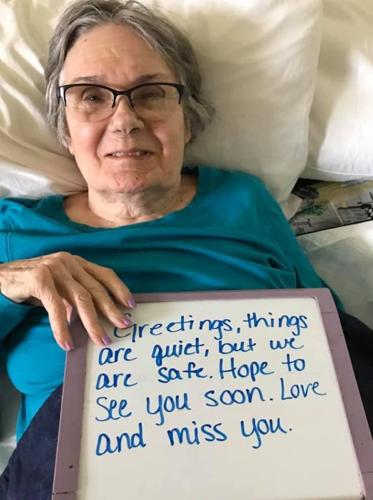 Greetings, things
are quiet, but we
are safe. Hope to
See you soon. Love
and miss you.